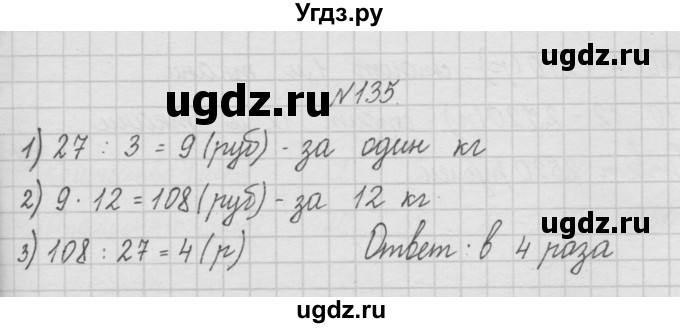 Угдз.ру
ugdz.ru
ugdz.ru
№135.
1) 27 : 3 = 9 (руб) - за один кг
2) 9 · 12 = 108 (руб) - за 12 кг
ugdz.ru
3) 108 : 27 = 4 (р) Ответ: в 4 раза
ugdz.ru
ugdz.ru